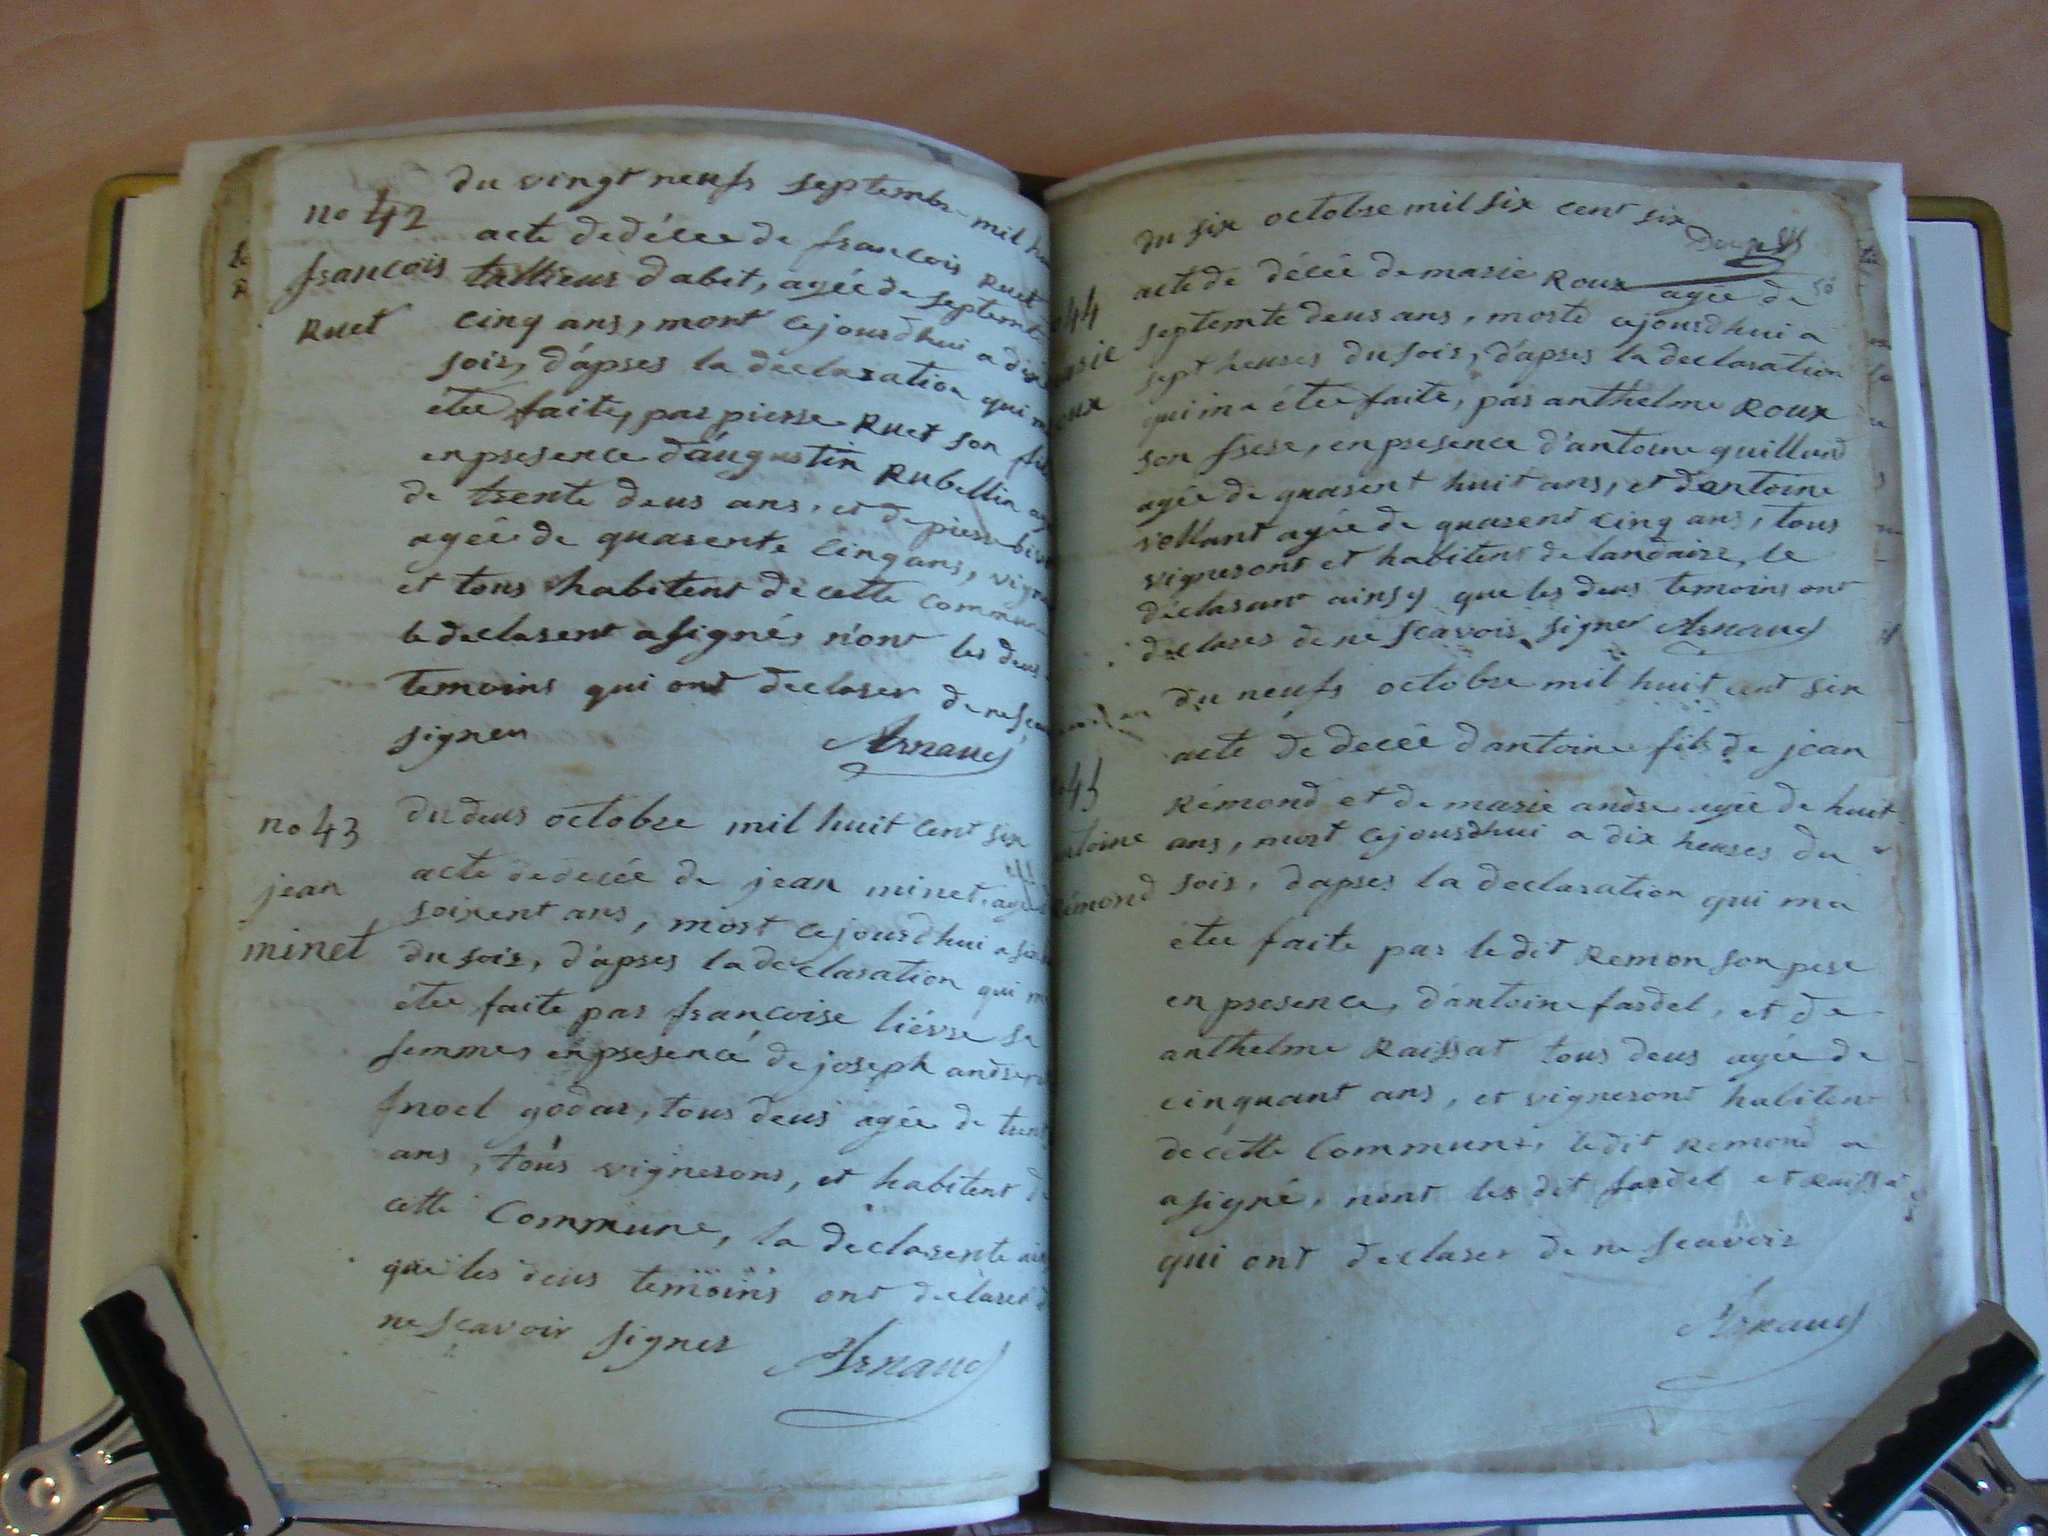 du vingt neufs septembre mil
no 42
acte de décée de françois Ruet
françois
tallieur d'abit, agée de septemte
Ruet
cinq ans, mort cejourdhui a dix
soir, d'apres la declaration qui m
étee faite, par pierre Ruet son fils
en presence d'augustin Rubellin
de trente deus ans, et de pierre
agée de quarente cinq ans,
et tous habitent de cette commune
le declarent a signé, n'ont les deus
temoins qui ont declarer de ne
signer
Arnaud
no 43
du deus octobre mil huit cent six
jean
minet
acte de decée de jean minet, agée
soixent ans, mort cejourdhui a
du soir, d'apres la declaration qui m
étee faite par françoise liévre sa
femmes en presence de joseph
noel godar, tous deus agée de
ans, tous vignerons, et habitent
cette Commune, la déclarente
que les deus temoins ont déclarer
ne scavoir signer
Arnaud
du six octobre mil six cent six
44
acte de décée de marie Roux agée de
septemte deus ans, morte cejourdhui a
sept heures du soir, d'apres la declaration
oux
qui ma étee faite, par anthelme Roux
son frere, en presence d'antoine quillend
agée de quarent huit ans, et d'antoine
vollant agée de quarent cinq ans, tous
vigneront et habitent de landaize, le
déclarant ainsy que les deus temoins ont
declarer de ne scavoir signer Arnaud
du neufs octobre mil huit cent six
acte de decée d'antoine fils de jean
45
Rémond et de marie andre agée de huit
antoine
ans, mort cejourdhui a dix heures du
Rémond
soir, d'apres la declaration qui ma
étee faite par ledit Remon son pere
en presence, d'antoine fardel, et de
anthelme Raissat tous deus agée de
cinquant ans, et vigneront habitent
de cette Commune, ledit Remond a
a signé, nont les dit fardel et
qui ont declarer de ne scavoir
Arnaud